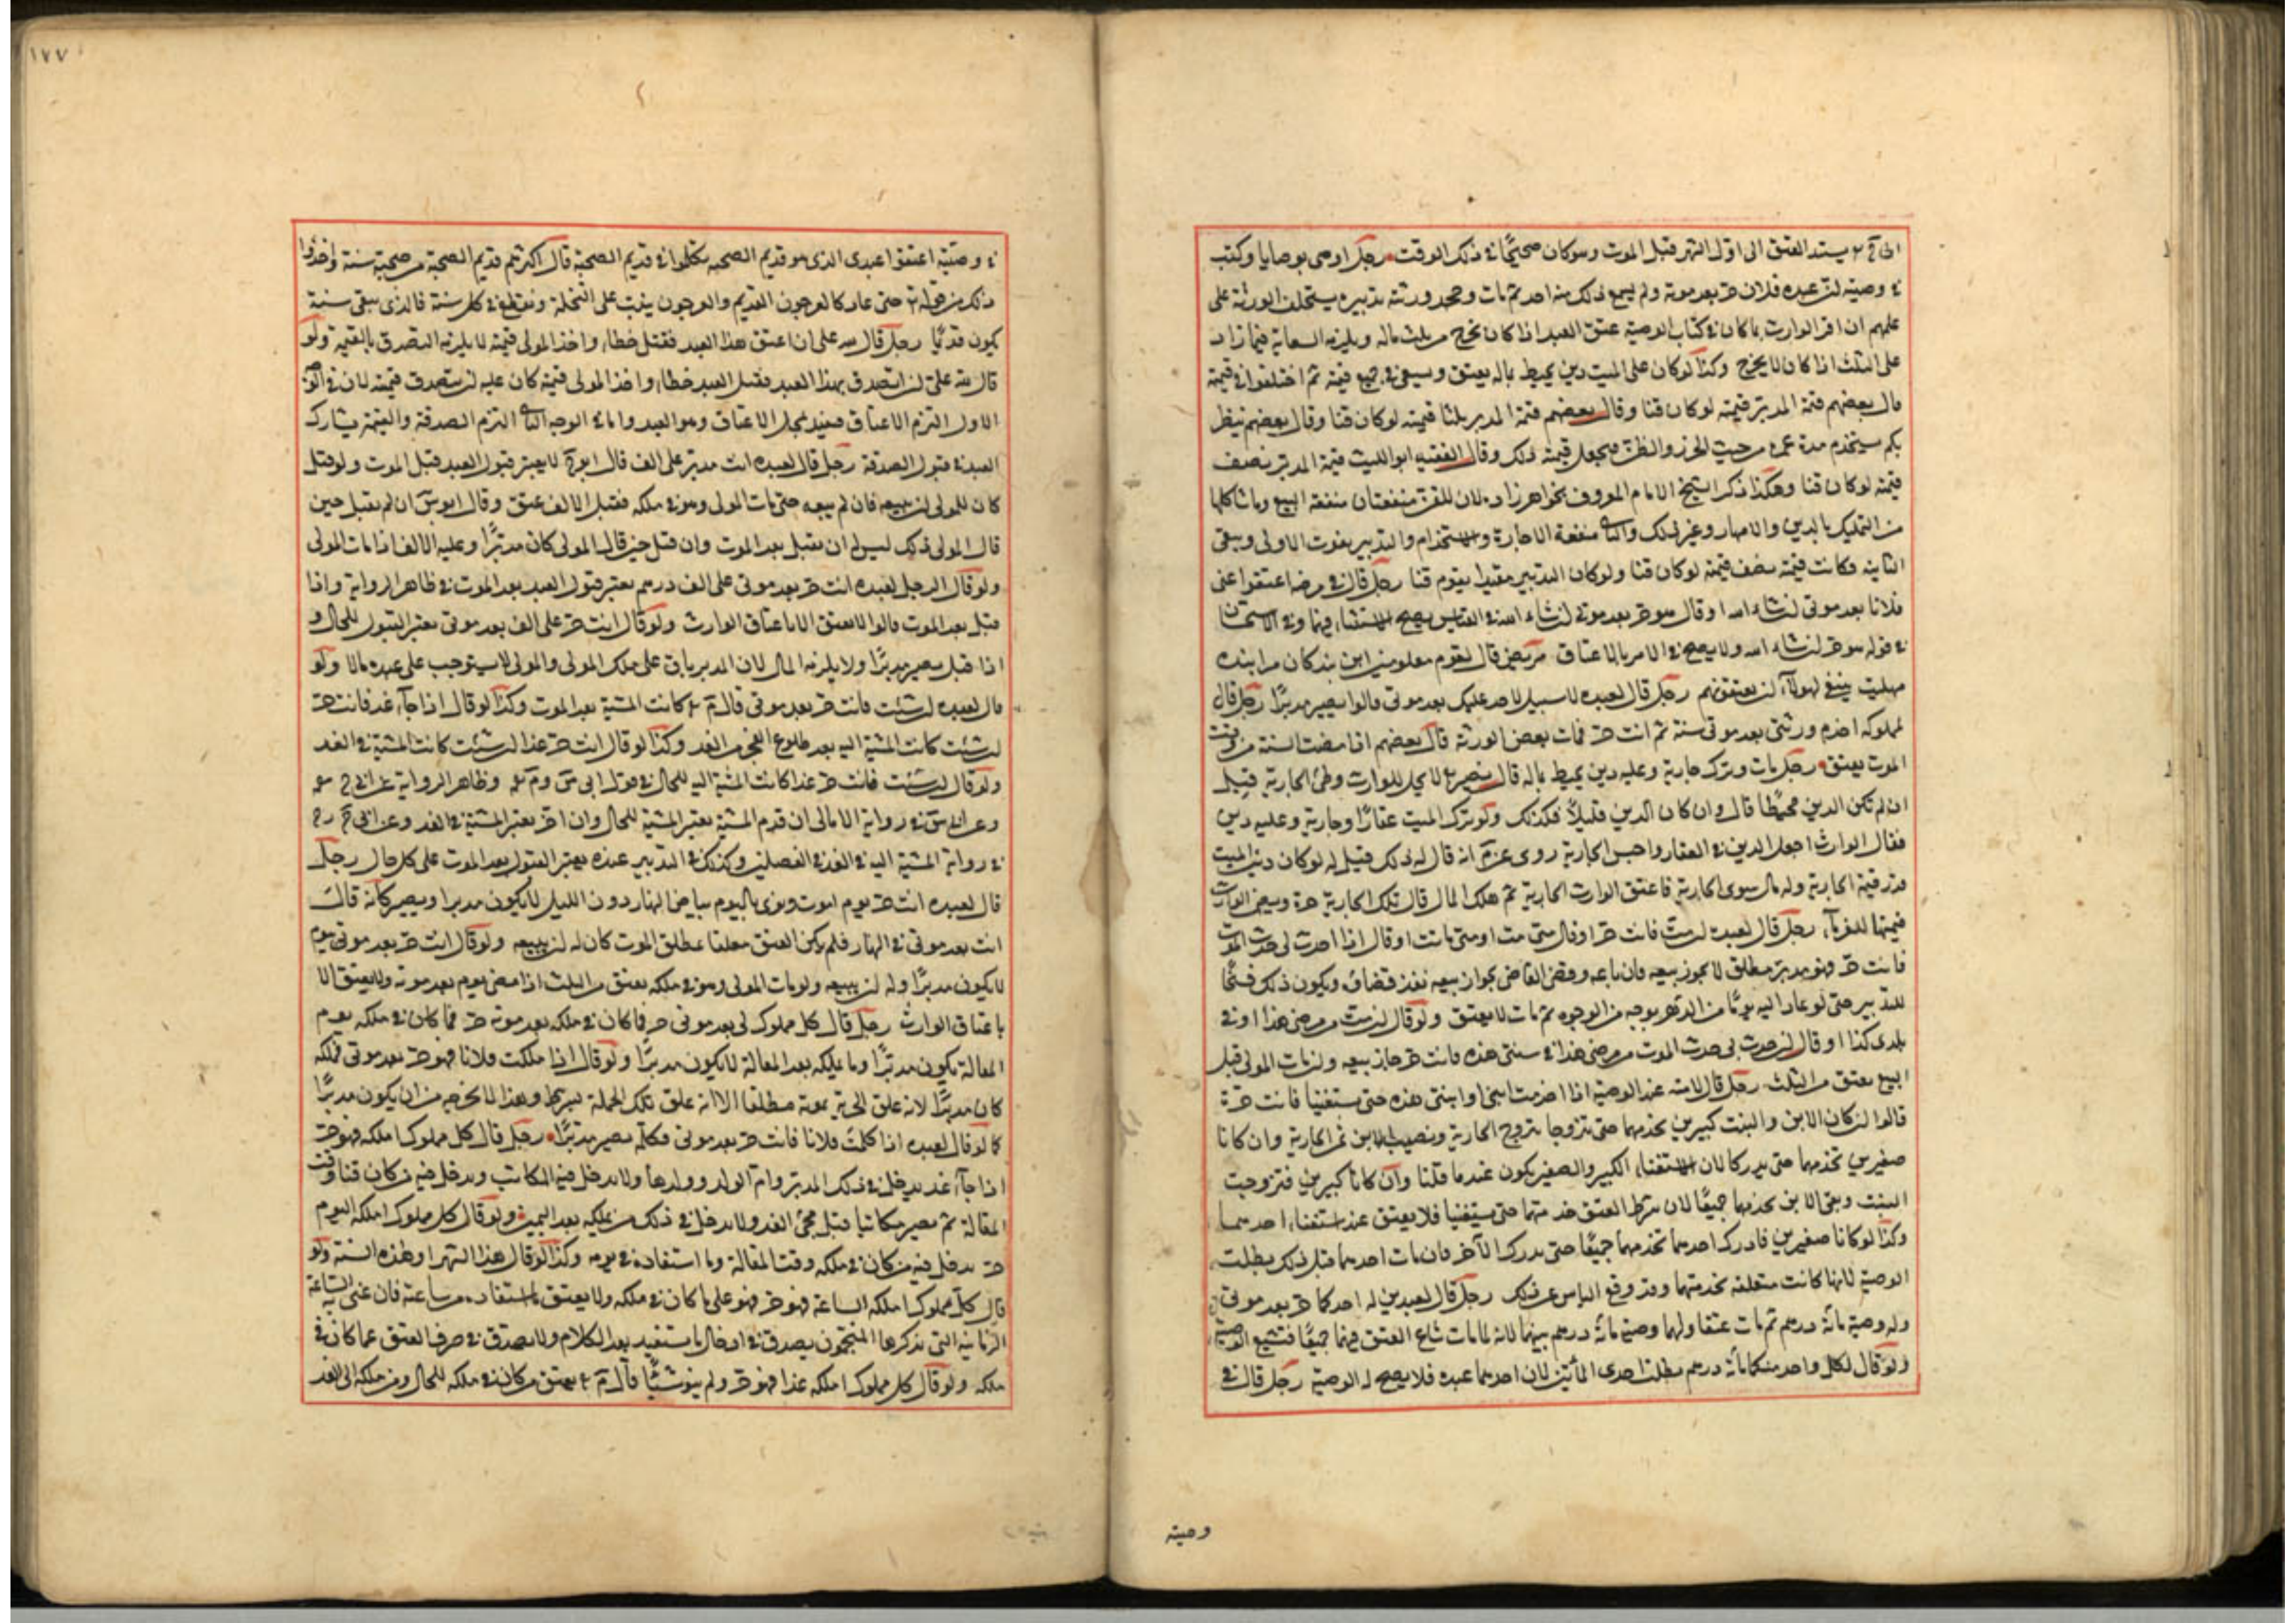 يستند العتق الى اول الشهر قبل الموت وهو كان صحيحًا في ذلك الوقت رجل اوصى بوصايا وكتب
في وصيته ان عبده فلان حر بعد موته ولم يسمع ذلك منه احد ثم مات وجحد ورثته تدبيره يستحلف الورثة على
علمهم ان اقر الوارث بما كان في كتاب الوصية عتق العبد اذا كان يخرج من ثلث ماله ويلزمه السعاية فيما زاد
على الثلث اذا كان لا يخرج وكذا لو كان على الميت دين يحيط بماله يعتق ويسعى في جميع قيمته ثم اختلفوا في قيمة
قال بعضهم قيمة المدبر قيمته لو كان قنا وقال بعضهم قيمة المدبر ثلثا قيمته لو كان قنا وقال بعضهم ينظر
بكم يستخدم مدة عمره من حيث الحزر والظن فيجعل قيمته ذلك وقال الفقيه ابو الليث قيمة المدبر نصف
قيمته لو كان قنا وهكذا ذكر الشيخ الامام المعروف بخواهر زاده لان للقن منفعتان منفعة البيع وما شاكلها
من التمليك بالدين والامهار وغير ذلك والثاني منفعة الاجارة والاستخدام والتدبير يفوت الاولى ويبقى
الثانية فكانت قيمته نصف قيمته لو كان قنا ولو كان التدبير مقيدا يقوم قنا رجل قال في مرضه اعتقوا عني
فلانا بعد موتي ان شاء الله او قال هو حر بعد موتي ان شاء الله في القياس يصح الاستثناء فيهما وفي الاستحسان
في قوله هو حر ان شاء الله ولا يصح في الامر بالاعتاق مريض قال لقوم معلومين
ينبغي لهؤلاء ان يعتقونهم رجل قال لعبده لا سبيل لاحد عليك بعد موتي قالوا يصير مدبرًا رجل قال
لمملوكه اخدم ورثتي بعد موتي سنة ثم انت حر فمات بعض الورثة قال بعضهم اذا مضت السنة من وقت
الموت يعتق رجل مات وترك جارية وعليه دين يحيط بماله قال لا يحل للوارث وطئ الجارية قيل
ان لم تكن الدين محيطا قال وان كان الدين قليلاً فكذلك ولو ترك الميت عقارًا وجارية وعليه دين
فقال الوارث اجعل الدين في العقار واحبس الجارية روى انه قال له ذلك قيل له لو كان دين الميت
قدر قيمة الجارية وله مال سوى الجارية فاعتق الوارث الجارية ثم هلك المال قال تلك الجارية حرة ويضمن الوارث
قيمتها للغرماء رجل قال لعبده ان مت فانت حر او قال متى مت او متى ما مت او قال اذا احدث لي حدث الموت
فانت حر فهو مدبر مطلق لا يجوز بيعه فان باعه وقضى القاضي بجواز بيعه نفذ قضاؤه ويكون ذلك فسخًا
للتدبير حتى لو عاد اليه يومًا من الدهر بوجه من الوجوه ثم مات لا يعتق ولو قال ان مت من مرضي هذا او في
بلدي كذا او قال ان حدث بي حدث الموت من مرضي هذا في سنتي هذه فانت حر جاز بيعه وان مات المولى قبل
البيع يعتق من الثلث رجل قال لامته عند الوصية اذا خدمت ابني او ابنتي هذه حتى يستغنيا فانت حرة
قالوا ان كان الابن والبنت كبيرين تخدمهما حتى تتزوجا بتزوج الجارية ونصيب الابن ثمن الجارية وان كانا
صغيرين تخدمهما حتى يدركا لان استغناء الكبير والصغير يكون عندما قلنا وان كانا كبيرين فتزوجت
البنت وبقي الابن تخدمهما جميعًا لان شرط العتق خدمتهما حتى يستغنيا فلا يعتق عند استغناء احدهما
وكذا لو كانا صغيرين فادرك احدهما تخدمهما جميعًا حتى يدرك الآخر فان مات احدهما قبل ذلك بطلت
الوصية لانها كانت متعلقة بخدمتهما وقد وقع الياس عن ذلك رجل قال لعبدين له احدكما حر بعد موتي
وله وصية مائة درهم ثم مات عتقا ولهما وصية مائة درهم بينهما لانه لما مات شاع العتق فيهما جميعًا فتشيع الوصية
ولو قال لكل واحد منكما مائة درهم بطلت احدى المائتين لان احدهما عبده فلا يصح له الوصية رجل قال في
وصيته
١٧٧
في وصيته اعتقوا عبدي الذي هو قديم الصحبة تكلموا في قديم الصحبة قال اكثرهم قديم الصحبة من صحبه سنة واخذوا
ذلك من قوله حتى عاد كالعرجون القديم والعرجون ينبت على النخلة ويقطع في كل سنة فالذي بقي سنة
يكون قديمًا رجل قال لله علي ان اعتق هذا العبد فقتل خطاء واخذ المولى قيمته لا يلزمه التصدق بالقيمة ولو
قال لله علي ان اتصدق بهذا العبد فقتل العبد خطاء واخذ المولى قيمته كان عليه ان يتصدق قيمته لان في الوجه
الاول التزم الاعتاق فيقيد بمحل الاعتاق وهو العبد واما في الوجه الثاني التزم الصدقة والقيمة تشارك
العبد في قبول الصدقة رجل قال لعبده انت مدبر على الف قال لا يعتبر قبول العبد قبل الموت ولو قبل
كان للمولى ان يبيعه فان لم يبعه حتى مات المولى وهو في ملكه فقبل الالف عتق وقال ابو س ان لم يقبل حين
قال المولى ذلك ليس له ان يقبل بعد الموت وان قبل حين قال المولى كان مدبرًا وعليه الالف اذا مات المولى
ولو قال الرجل لعبده انت حر بعد موتي على الف درهم يعتبر قبول العبد بعد الموت في ظاهر الرواية واذا
قبل بعد الموت قالوا لا يعتق الا باعتاق الوارث ولو قال انت حر على الف بعد موتي يعتبر القبول للحال و
اذا قبل يصير مدبرًا ولا يلزمه المال لان المدبر باق على ملك المولى والمولى لا يستوجب على عبده مالا ولو
قال لعبده ان شئت فانت حر بعد موتي قال كانت المشية بعد الموت وكذا لو قال اذا جاء غد فانت حر
ان شئت كانت المشية اليه بعد طلوع الفجر من الغد وكذا لو قال انت حر غدا ان شئت كانت المشية في الغد
ولو قال ان شئت فانت حر غدا كانت المشية اليه للحال في قول ابي س وم وظاهر الرواية عن ابي ح
وعن ابي س في رواية الامالي ان قدم المشية يعتبر المشية للحال وان اخر يعتبر المشية في الغد وعن ابي ح
في رواية المشية اليه في الغد في الفصلين وكذلك في التدبير عنده يعتبر القبول بعد الموت على كل حال رجل
قال لعبده انت حر يوم اموت ونوى باليوم بياض النهار دون الليل لا يكون مدبرا ويصير كانه قال
انت بعد موتي في النهار فلم يكن العتق معلقا بمطلق الموت كان له ان يبيعه ولو قال انت حر بعد موتي بيوم
لا يكون مدبرًا وله ان يبيعه ولو مات المولى وهو في ملكه يعتق من الثلث اذا مضى يوم بعد موته ولا يعتق الا
باعتاق الوارث رجل قال كل مملوك لي بعد موتي حر فما كان في ملكه بعد موته حر فما كان في ملكه يوم
المقالة يكون مدبرًا وما يملكه بعد المقالة لا يكون مدبرًا ولو قال اذا ملكت فلانا فهو حر بعد موتي فملكه
كان مدبرًا لانه علق الحرية بموته مطلقا الا انه علق تلك الجملة بشرط وهذا لا يخرجه من ان يكون مدبرًا
كما لو قال لعبده اذا كلمت فلانا فانت حر بعد موتي فكلمه يصير مدبرًا رجل قال كل مملوك املكه فهو حر
اذا جاء غد يدخل في ذلك المدبر وام الولد وولدها ولا يدخل فيه المكاتب ويدخل فيه من كان قنا وقت
المقالة ثم يصير مكاتبا قبل مجئ الغد ولا يدخل في ذلك من يملكه بعد اليمين ولو قال كل مملوك املكه اليوم
حر يدخل فيه من كان في ملكه وقت المقالة وما استفاده في يومه وكذا لو قال هذا الشهر او هذه السنة ولو
قال كل مملوك املكه الساعة فهو حر فهو على ما كان في ملكه ولا يعتق ما استفاد من ساعته فان عنى به الساعة
الزمانية التي يذكرها المنجمون يصدق في ادخال ما يستفيد بعد الكلام ولا يصدق في صرف العتق عما كان في
ملكه ولو قال كل مملوك املكه غدا فهو حر ولم ينو شيئًا قال يعتق من كان في ملكه للحال ومن ملكه الى الغد